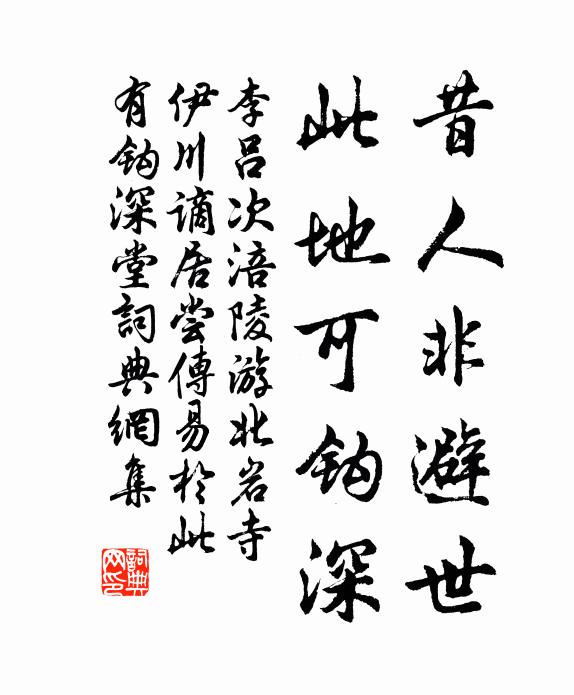 昔人非避世
此地可鈎深
李呂次涪陵游北岩寺
伊川謫居嘗傳易於此
有鈎深堂詞典網集
詞典网印